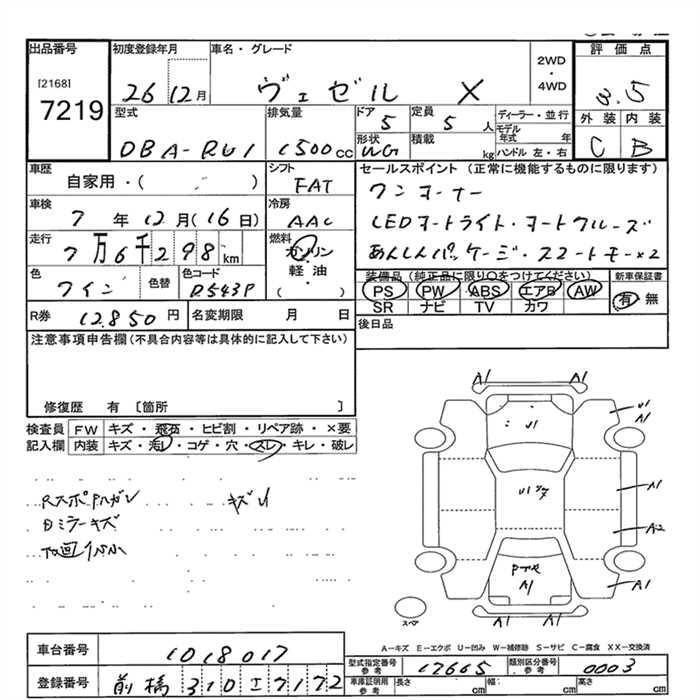 出品番号 初度登録年月 車名・グレード 2WD・4WD 評価点
[2168]
7219 26 12月 ヴェゼル X 3.5
型式 排気量 ドア 5 定員 5人 ディーラー・並行 外装 内装
DBA-RU1 1500cc 形状 WG 積載 kg モデル年式 年 ハンドル 左・右 C B
車歴 シフト セールスポイント (正常に機能するものに限ります)
自家用・( ) FAT ワンオーナー
車検 冷房
7年12月(16日) AAC LEDオートライト・オートクルーズ
走行 燃料
7万6千298km ガソリン あんしんパッケージ・スマートキー×2
軽油
( )
色 色替 色コード 装備品 (純正品に限り○をつけてください) 新車保証書
ワイン R543P PS PW ABS エアB AW 有 無
SR ナビ TV カワ
R券 12,850円 名変期限 月 日 後日品
注意事項申告欄(不具合内容等は具体的に記入して下さい)
修復歴 有 〔箇所 〕
検査員 FW キズ・飛石・ヒビ割・リペア跡・×要
記入欄 内装 キズ・汚レ・コゲ・穴・スレ・キレ・破レ
A1 A1
U1
U1 A1
キズU
ミラーキズ
A1
A2
A1 A1
A1 A1
スペア
A-キズ E-エクボ U-凹み W-補修跡 S-サビ C-腐食 XX-交換済
車台番号 1018017
型式指定番号 参考 17665 類別区分番号 参考 0003
登録番号 前橋 310 エ 7172
車庫証明用 参考 長さ cm 幅 cm 高さ cm